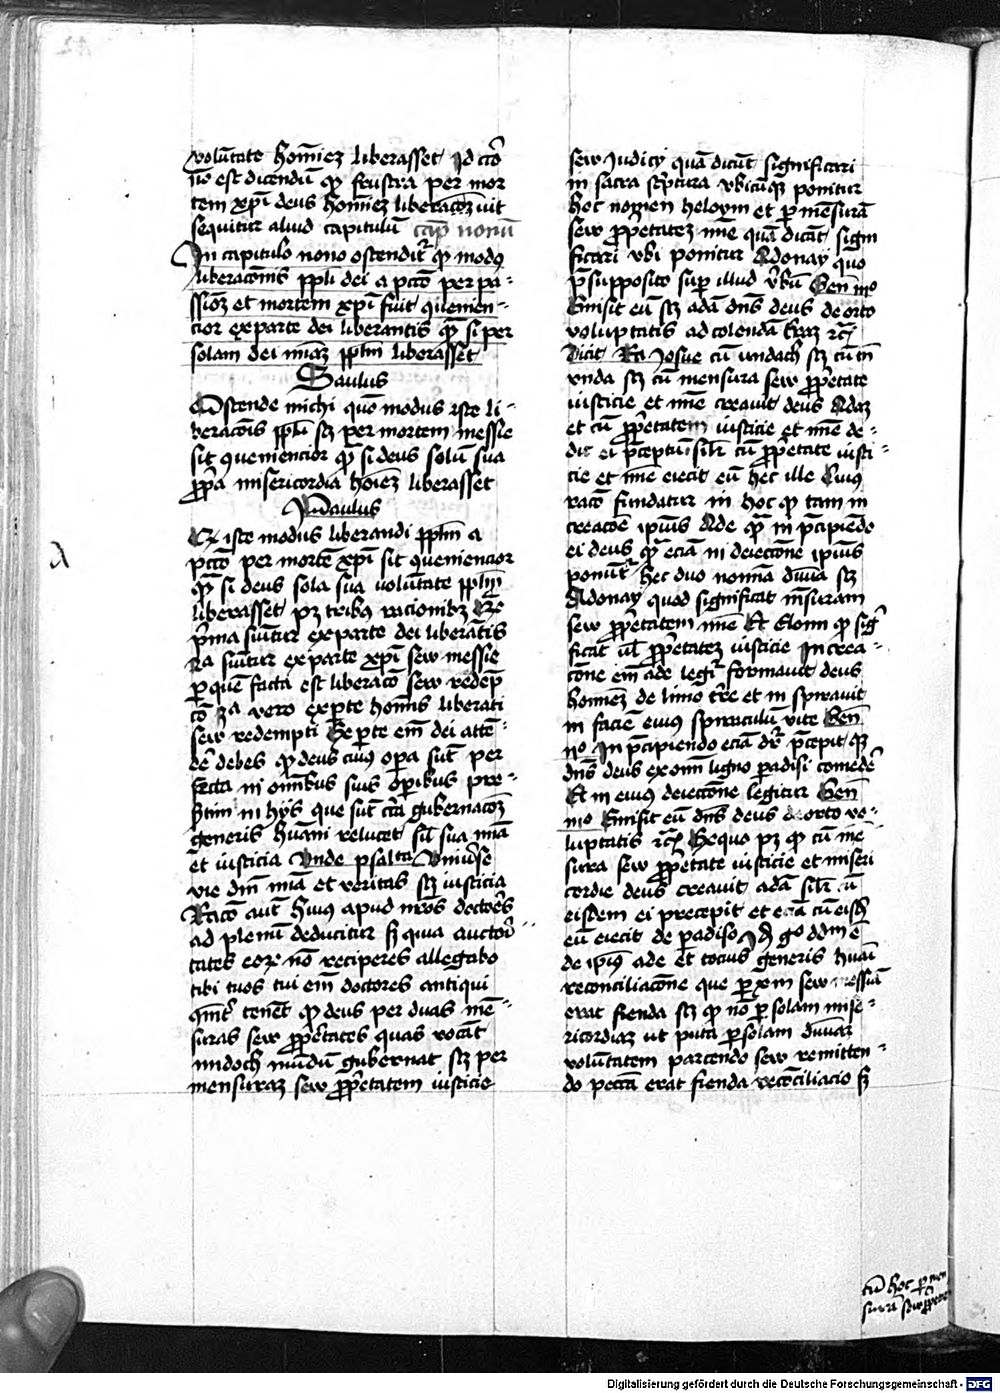 volūtate homiēz liberasset Id ciro
nō est dicendū qp frustra per mor
tem xpī deus homiēz liberacoēz uit
sequitur aliud capitulū cap nonū
In capitulo nono ostendit qp modus
liberacōnis ppli dei a pctō per pa-
ssioēz et mortem xpī fuit quenien-
cior ex parte dei liberantis qm si per
solam dei miaz pplm liberasset
Saulus
Ostende michi quō modus iste li-
beracōis ppli sz per mortem messie
sit queniencior qm si deus solū sua
ppa misericordia hoiez liberasset
Paulus
iste modus liberandi pplm a
pctō per mortē xpī sit queniencior
qm si deus sola sua volūtate pplm
liberasset pz tribus racionibz
prima sumitur ex parte dei liberātis
2a sumitur ex parte xpī sew messie
per quē facta est liberaco sew redēp
cō 3a vero ex pte homīs liberati
sew redempti Ex pte em dei atten-
dē debes qp deus cuius opa sūt per
fecta in omībus suis opībus pre-
sertim in hys que sūt circa gubernacoēz
generis hūani relucet sil sua mia
et iusticia Unde psalta Univse
vie dnī mīa et veritas sz iusticia
Racō aut huius apud nros doctores
ad plenū deducitur sz quia auctori-
tates eorz nō reciperes allegabo
tibi tuos tui em doctores antiqui
tenēt qp deus per duas mē-
suras sew ppetates quas vocāt
middoch mūdū gubernat sz per
mensuraz sew ppetatem iusticie
sew Judicy quā dicūt significari
in sacra scptura vbicūqz ponitur
hoc nomen heloym et p mēsurā
sew ppetatez mie quā dicāt signi
ficari vbi ponitur Adonay quo
psupposito sup illud vbū Gen iiio
Emisit eū sz adā dns deus de orto
voluptatis ad colendā trāz rc
dicit Ra Josue cū
vnda sz cū mensura sew ppetate
iusticie et mie creauit deus Adaz
et cū ppetatem iusticie et mie de-
dit ei pceptū silr cū ppetate iusti-
cie et mie eiecit eū hec ille Cuius
racō fundatur in hoc qp tam in
creacōe ipius Ade qm in pcipiēdo
ei deus qm eciā in deiectōne ipius
ponūt hec duo nomīa diuīa sz
Adonay quod significat mēsuram
sew ppetatem mie Et Eloim qp sig
ficat ul ppetatez iusticie In crea-
cōne em ade legit formauit deus
homiēz de limo tre et in spirauit
in faciē eius spiraculū vite Gen
iio In pcipiendo eciā dr pcepit qz
dns deus ex omi ligno padisi comede
Et in eius deiectōne legitur Gen
iiio Emisit eū dns deus de orto vo-
luptatis rc Sequo pz qp cū me
sura sew ppetate iusticie et miseri
cordie deus creauit adā silr cū
eisdem ei precepit et eciā cū eisdē
eū eiecit de padiso
de ipius ade et totius generis huāi
reconciliacōne que p xm sew messiā
erat fienda sz qp nō p solam mise-
ricordiaz ut puta p solam diuīaz
volūtatem parcendo sew remitten-
do peccā erat fienda recōciliacio sz
cū hoc p men
surā sew ppetate
Digitalisierung gefördert durch die Deutsche Forschungsgemeinschaft - DFG